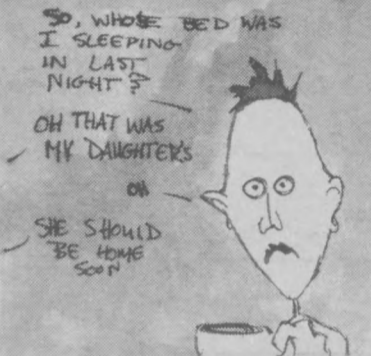 SO, WHOSE BED WAS
I SLEEPING
IN LAST
NIGHT?
OH THAT WAS
MY DAUGHTER'S
OH
SHE SHOULD
BE HOME
SOON